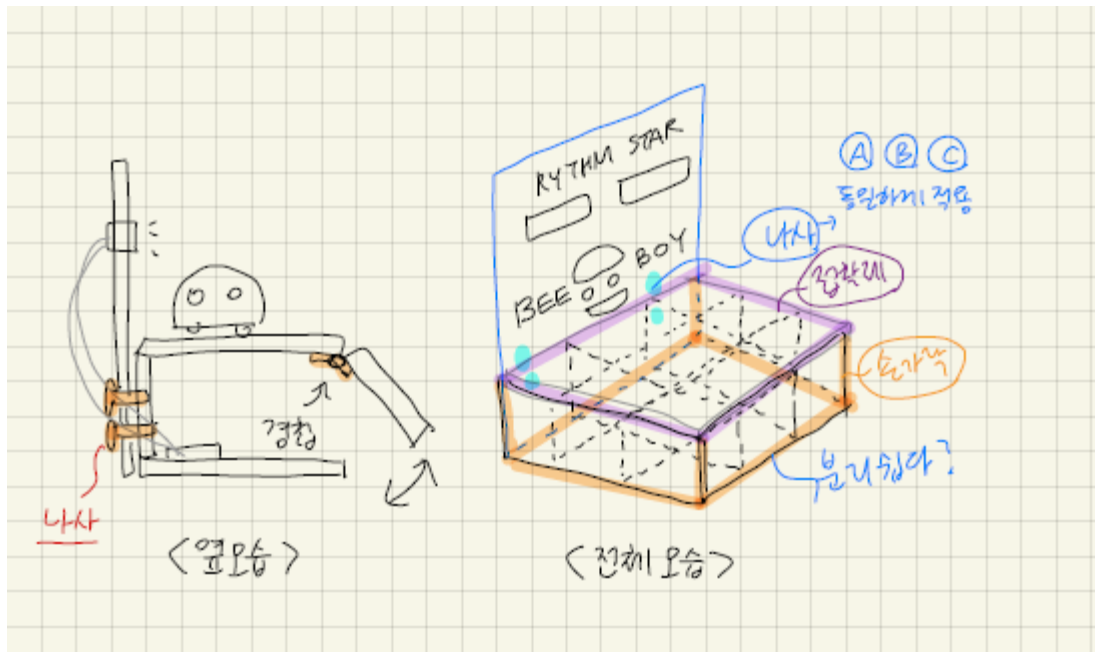 경첩
나사
<옆모습>
RYTHM STAR
BEE BOY
나사
A B C
동일하게 적용
손가락
분리쉽다?
<전체모습>